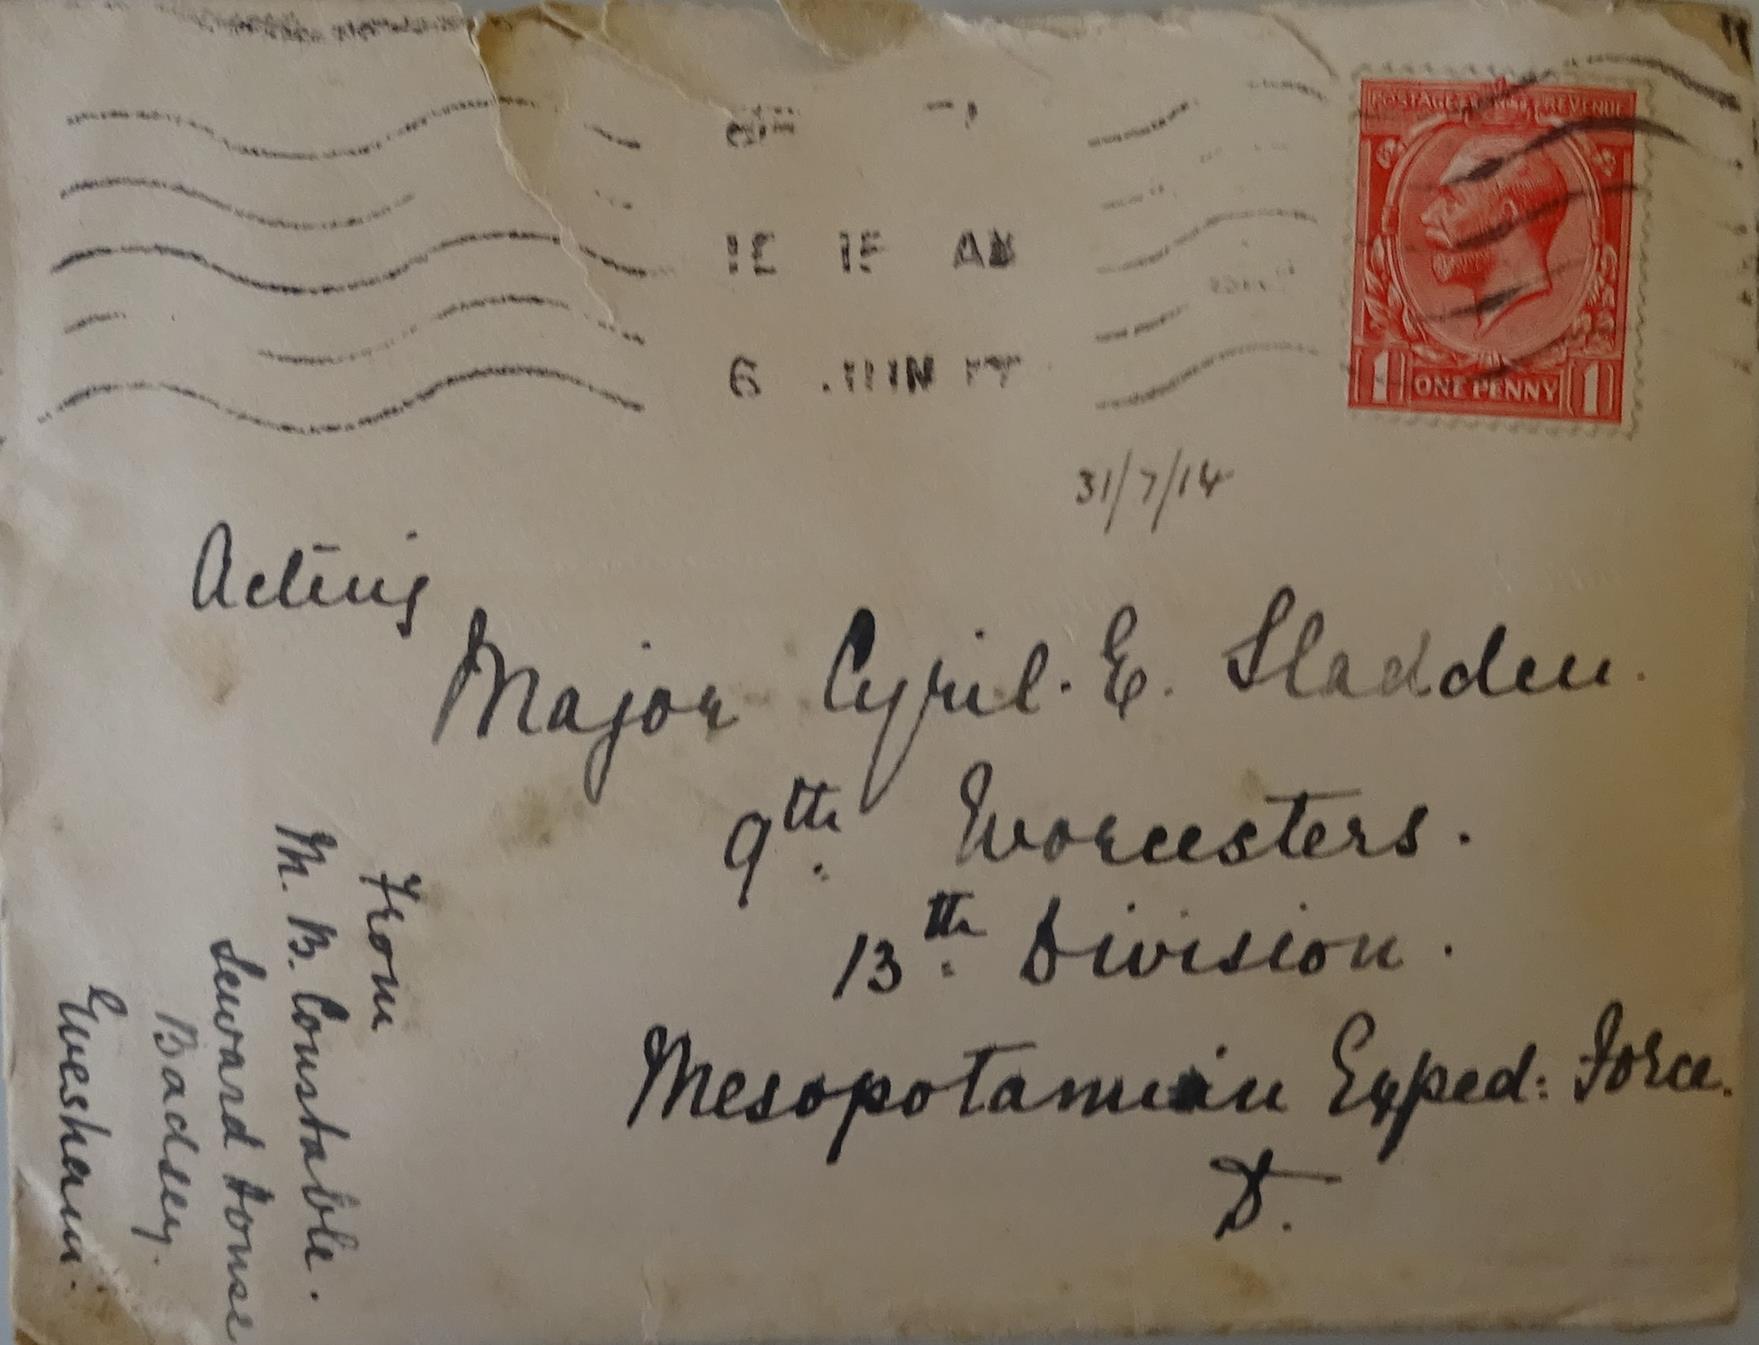 6 JUN 17
POSTAGE REVENUE
1 ONE PENNY 1
31/7/14
Acting
Major Cyril. E. Sladden.
9th Worcesters.
13th Division.
Mesopotamian Exped: Force.
D.
From
M. B. Constable.
Seward House
Badsey.
Evesham.